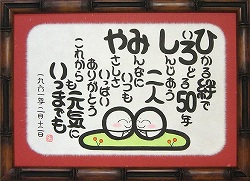 ひかる絆で
いろどる50年
しんじあう
二人
みんなに
いつも
やさしさ
いっぱい
ありがとう
これから
も元気に
いつまでも
一九六一年二月十二日